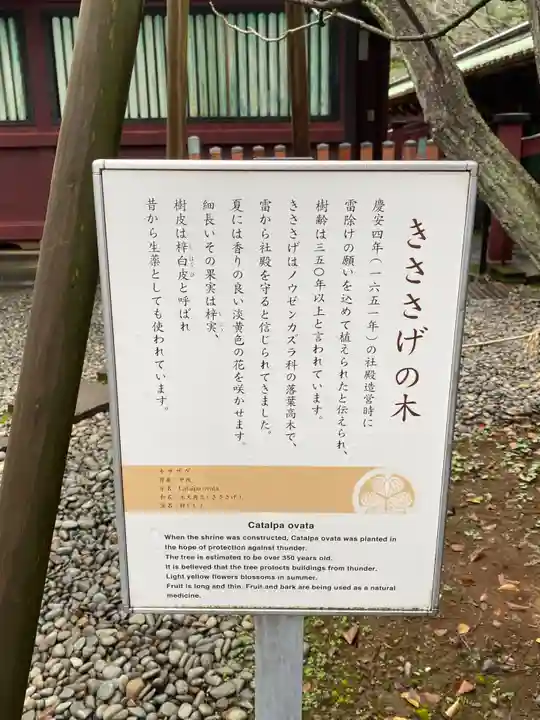 きささげの木
慶安四年（一六五一年）の社殿造営時に
雷除けの願いを込めて植えられたと伝えられ、
樹齢は三五〇年以上と言われています。
きささげはノウゼンカズラ科の落葉高木で、
雷から社殿を守ると信じられてきました。
夏には香りの良い淡黄色の花を咲かせます。
細長いその果実は梓実、
樹皮は梓白皮と呼ばれ
昔から生薬としても使われています。
キササゲ
原産 中国
学名 Catalpa ovata
Catalpa ovata
When the shrine was constructed, Catalpa ovata was planted in
the hope of protection against thunder.
The tree is estimated to be over 350 years old.
It is believed that the tree protects buildings from thunder.
Light yellow flowers blossoms in summer.
Fruit is long and thin. Fruit and bark are being used as a natural
medicine.